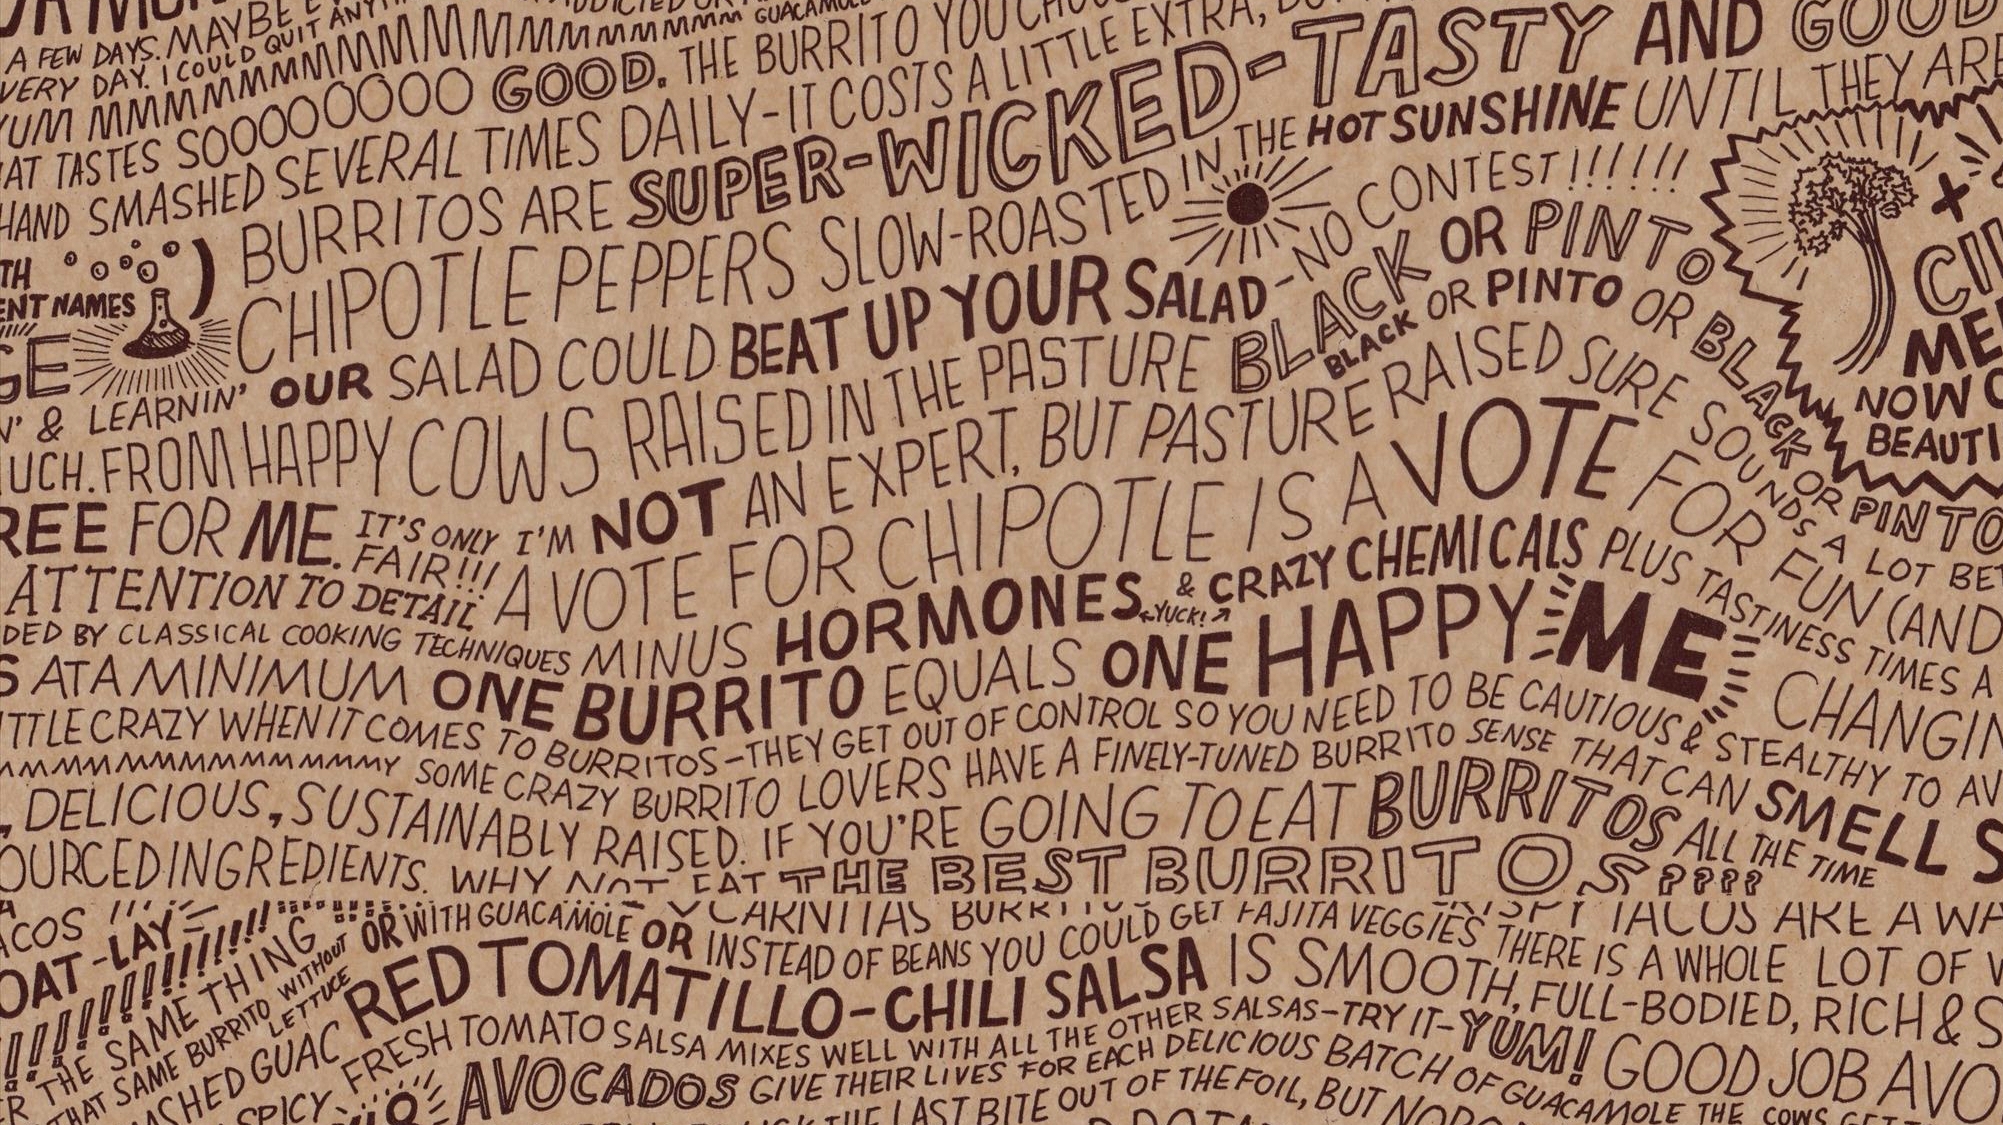 A FEW DAYS. MAYBE
VERY DAY. I COULD QUIT
YUM MMMMMMMMMMMMMMMMMMMM GUACAMOLE
AT TASTES SOOOOOOOO GOOD. THE BURRITO YOU
HAND SMASHED SEVERAL TIMES DAILY-IT COSTS A LITTLE EXTRA,
BURRITOS ARE SUPER-WICKED-TASTY AND GOOD
CHIPOTLE PEPPERS SLOW-ROASTED IN THE HOT SUNSHINE UNTIL THEY ARE
TH
ENT NAMES
GE
N' & LEARNIN' OUR SALAD COULD BEAT UP YOUR SALAD-NO CONTEST!!!!!!
UCH. FROM HAPPY COWS RAISED IN THE PASTURE BLACK OR PINTO
BLACK OR PINTO OR BLACK OR PINTO
REE FOR ME. IT'S ONLY FAIR!!! I'M NOT AN EXPERT, BUT PASTURE RAISED SURE SOUNDS A LOT BET
ATTENTION TO DETAIL A VOTE FOR CHIPOTLE IS A VOTE FOR FUN (AND
DED BY CLASSICAL COOKING TECHNIQUES MINUS HORMONES & CRAZY CHEMICALS PLUS TASTINESS TIMES A
←YUCK!↗
S AT A MINIMUM ONE BURRITO EQUALS ONE HAPPY ME CHANGIN
ITTLE CRAZY WHEN IT COMES TO BURRITOS-THEY GET OUT OF CONTROL SO YOU NEED TO BE CAUTIOUS & STEALTHY TO AV
MMMMMMMMMMMMMMMY SOME CRAZY BURRITO LOVERS HAVE A FINELY-TUNED BURRITO SENSE THAT CAN SMELL S
, DELICIOUS, SUSTAINABLY RAISED. IF YOU'RE GOING TO EAT BURRITOS ALL THE TIME
OURCED INGREDIENTS. WHY NOT EAT THE BEST BURRITOS????
+
CI
ME
NOW
BEAUTI
ACOS CARNITAS CRISPY TACOS ARE A WA
OAT-LAY
OR WITH GUACAMOLE OR INSTEAD OF BEANS YOU COULD GET FAJITA VEGGIES THERE IS A WHOLE LOT OF
THE SAME THING
THAT SAME BURRITO WITHOUT LETTUCE
RED TOMATILLO-CHILI SALSA IS SMOOTH, FULL-BODIED, RICH & S
ASHED GUAC
SPICY FRESH TOMATO SALSA MIXES WELL WITH ALL THE OTHER SALSAS-TRY IT-YUM! GOOD JOB AVO
AVOCADOS GIVE THEIR LIVES FOR EACH DELICIOUS BATCH OF GUACAMOLE THE COWS GET
THE LAST BITE OUT OF THE FOIL, BUT